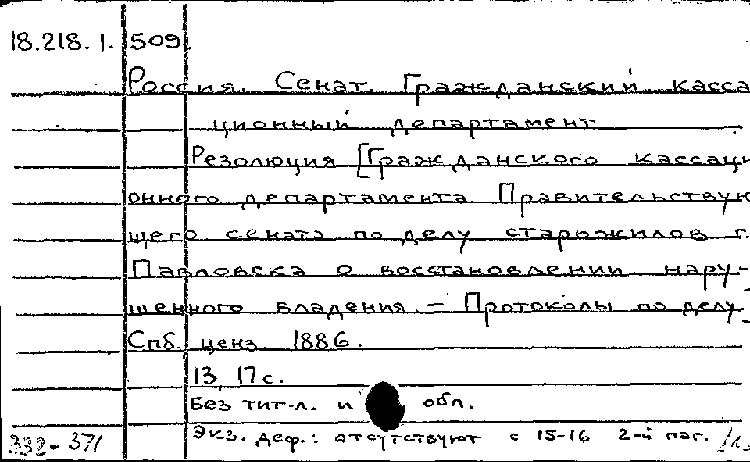 18.218.1. 509.
Россия. Сенат. Гражданский касса
ционный департамент
Резолюция [Гражданского кассаци
онного департамента Правительствую
щего сената по делу старожилов г.
Павловска о восстановлении нару-
шенного владения. – Протоколы по делу
Спб ценз 1886.
13, 17 с.
Без тит-л. и обл.
Экз. деф.: отсутствуют с 15-16 2-й паг.
332-371